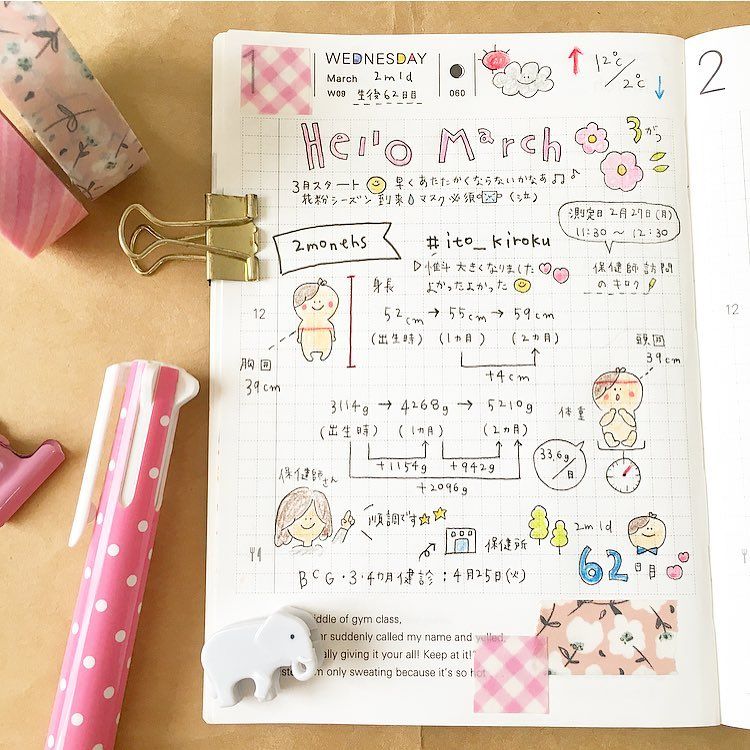 1
WEDNESDAY
March 2m1d
W09 生後62日目
060
12℃/2℃
2
Hello March
3がつ
3月スタート 早くあたたかくならないかなぁ♫♪
花粉シーズン到来 マスク必須 (泣)
測定日 2月27日(月)
11:30～12:30
2months
#ito_kiroku
▷惟斗 大きくなりました
よかったよかった
保健師訪問
のキロク
身長
52cm → 55cm → 59cm
(出生時) (1ヵ月) (2ヵ月)
+4cm
12
12
胸囲
39cm
頭囲
39cm
3114g → 4268g → 5210g
(出生時) (1ヵ月) (2ヵ月)
+1154g +942g
+2096g
体重
33.6g/日
保健師さん
順調です
保健所
2m1d
62日目
BCG・3・4ヵ月健診：4月25日(火)
iddle of gym class,
ar suddenly called my name and yelled,
ally giving it your all! Keep at it!?
m only sweating because it's so hot